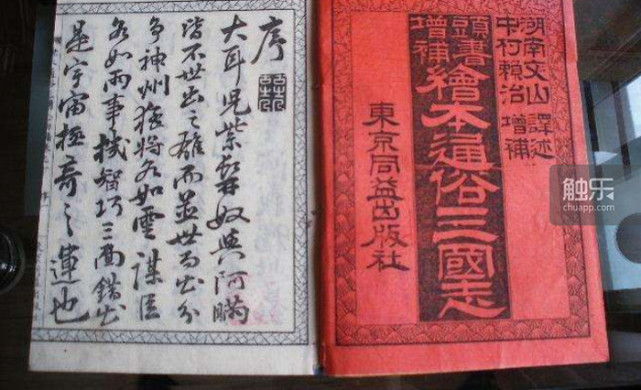 湖南文山 譯述
中村頼治 增補
頭書
增補
繪本通俗三國志
東京同益出版社
序
大耳兒紫髯奴與阿瞞
皆不世出之雄而並世而出分
争神州猛將各如雲謀臣
各如雨事機智巧三面錯出
是宇宙極奇之運也
触乐
chuapp.com